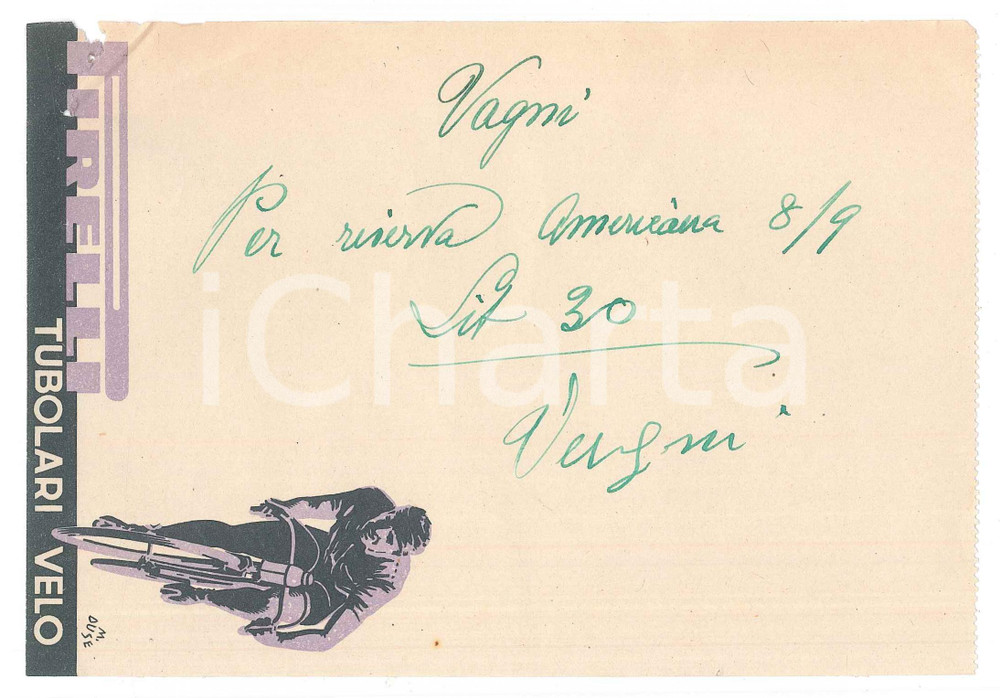 PIRELLI
TUBOLARI VELO
M. DUSE
Vagni
Per riserva Americana 8/9
Lit 30
iCharta